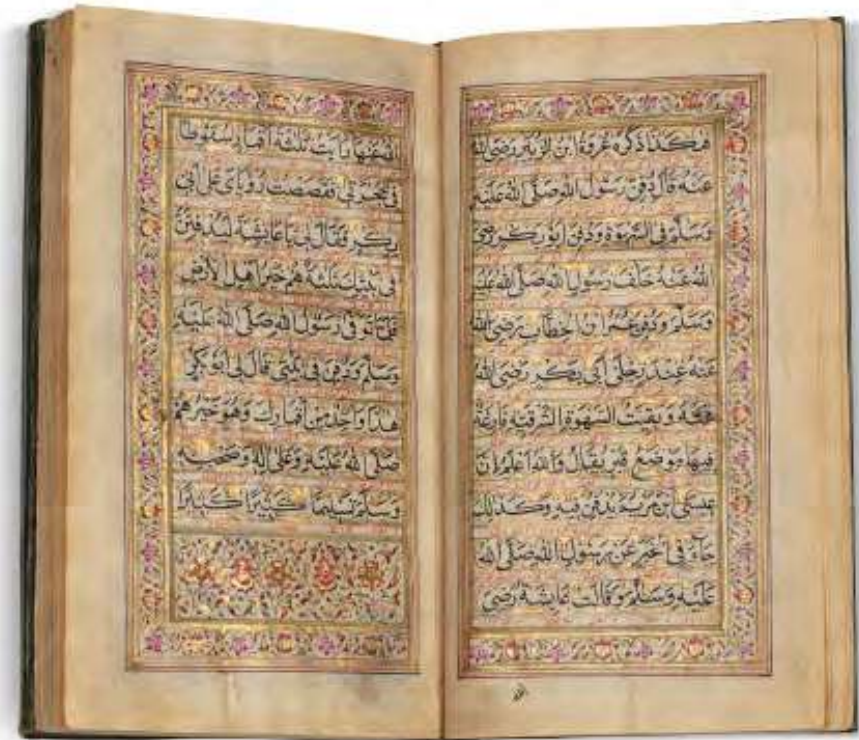 هكذا ذكره عروة ابن الزبير رضي الله
عنه قال دفن رسول الله صلى الله عليه
وسلم في السهوة ودفن ابو بكر رضي
الله عنه خلف رسول الله صلى الله عليه
وسلم ودفن عمر ابن الخطاب رضي الله
عنه عند رجلي أبي بكر رضي الله
عنه وبقيت السهوة الشرقية فارغة
فيها موضع قبر يقال والله اعلم ان
عيسى ابن مريم يدفن فيه وكذلك
جاء في الخبر عن رسول الله صلى الله
عليه وسلم وقالت عايشة رضي
الله عنها رايت ثلثة اقمار سقوطا
في حجرتي فقصصت رؤياي على أبي
بكر فقال لي يا عايشة ليدفنن
في بيتك ثلثة هم خير اهل الارض
فلما توفي رسول الله صلى الله عليه
وسلم ودفن في بيتي قال لي أبو بكر
هذا واحد من أقمارك وهو خيرهم
صلى الله عليه وعلى اله وصحبه
وسلم تسليما كثيرا كثيرا